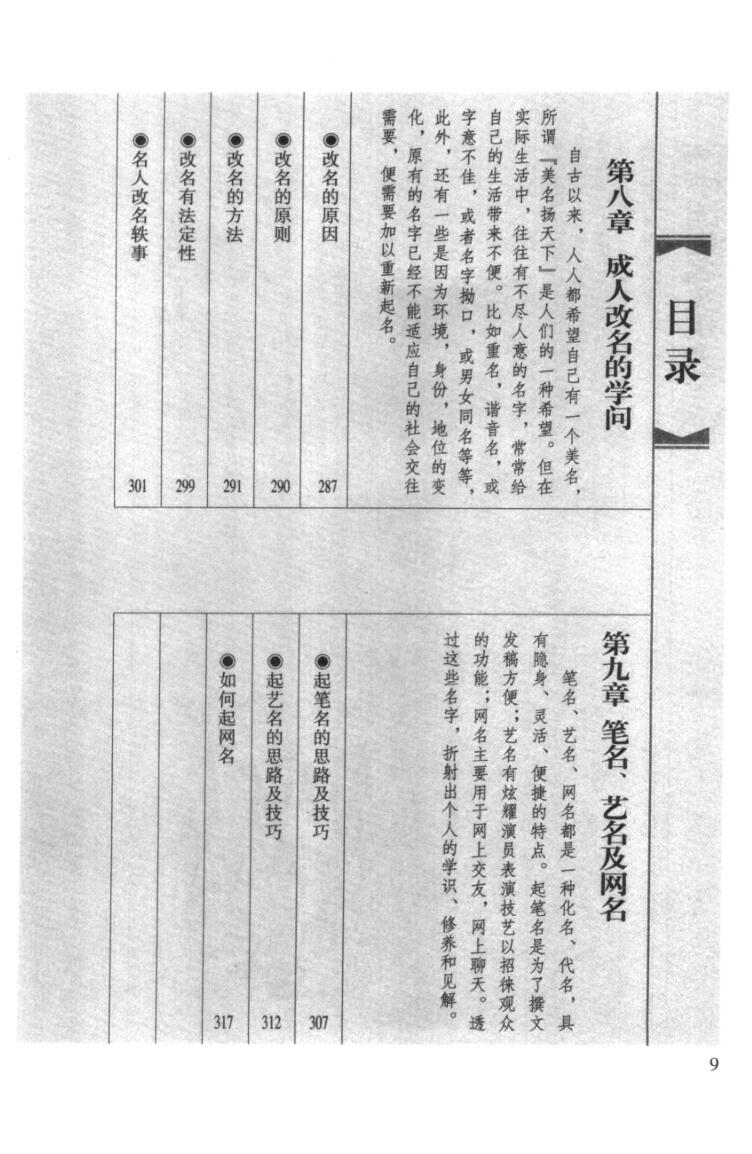 目录
第八章 成人改名的学问
自古以来，人人都希望自己有一个美名，
所谓『美名扬天下』是人们的一种希望。但在
实际生活中，往往有不尽人意的名字，常常给
自己的生活带来不便。比如重名，谐音名，或
字意不佳，或者名字拗口，或男女同名等等，
此外，还有一些是因为环境，身份，地位的变
化，原有的名字已经不能适应自己的社会交往
需要，便需要加以重新起名。
◉改名的原因 287
◉改名的原则 290
◉改名的方法 291
◉改名有法定性 299
◉名人改名轶事 301
第九章 笔名、艺名及网名
笔名、艺名、网名都是一种化名、代名，具
有隐身、灵活、便捷的特点。起笔名是为了撰文
发稿方便；艺名有炫耀演员表演技艺以招徕观众
的功能；网名主要用于网上交友，网上聊天。透
过这些名字，折射出个人的学识、修养和见解。
◉起笔名的思路及技巧 307
◉起艺名的思路及技巧 312
◉如何起网名 317
9